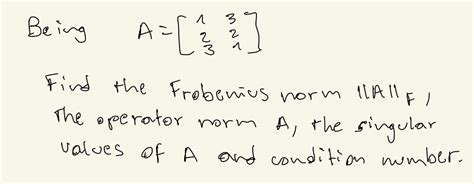 Being A = [ 1 3
2 2
3 1 ]
Find the Frobenius norm ||A||F,
The operator norm A, the singular
values of A and condition number.